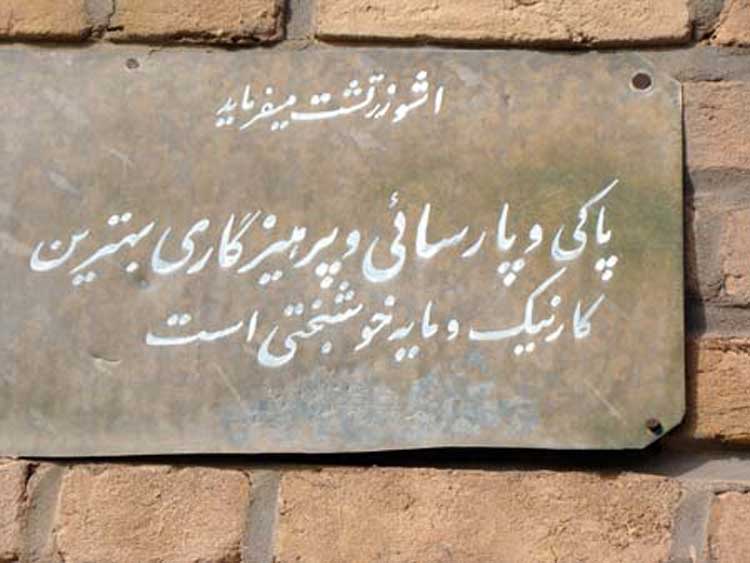 اشو زرتشت میفرماید
پاکی و پارسائی و پرهیزگاری بهترین
کار نیک و مایه خوشبختی است